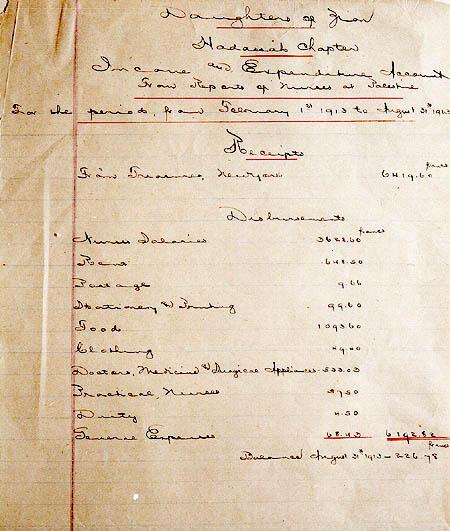 Daughters of Zion
Hadassah Chapter
Income and Expenditure Account
From Reports of Nurses at Palestine
For the period, from February 1st 1913 to August 31st 1913
Receipts
francs
From Treasurer, New York 6419.60
Disbursements
francs
Nurses Salaries 3628.60
Rent 648.50
Postage 9.66
Stationery & Printing 99.60
Food 1093.60
Clothing 49.40
Doctors, Medicine & Surgical Appliances 533.03
Practical Nurses 57.50
Duty 4.50
General Expense 68.43 6192.82
francs
Balance August 31st 1913 – 226.78